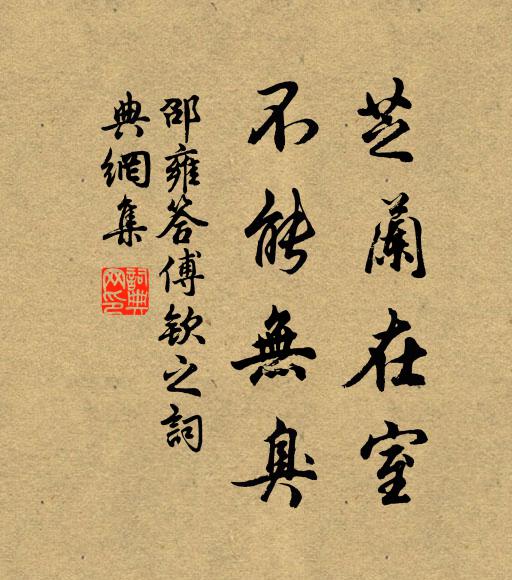 芝蘭在室
不能無臭
邵雍答傅欽之詞
典網集
詞典网印